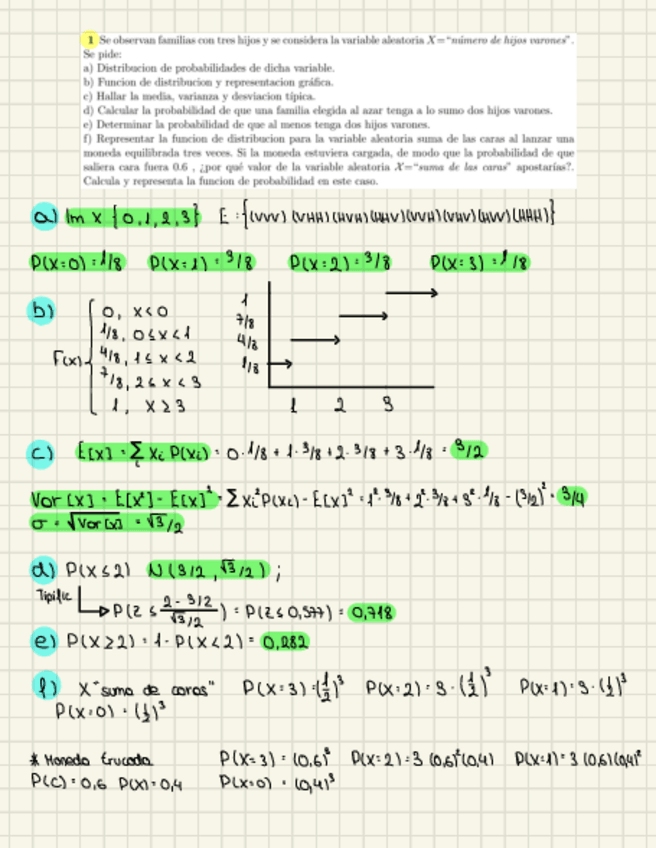 1 Se observan familias con tres hijos y se considera la variable aleatoria X="número de hijos varones".
Se pide:
a) Distribucion de probabilidades de dicha variable.
b) Funcion de distribucion y representacion gráfica.
c) Hallar la media, varianza y desviacion típica.
d) Calcular la probabilidad de que una familia elegida al azar tenga a lo sumo dos hijos varones.
e) Determinar la probabilidad de que al menos tenga dos hijos varones.
f) Representar la funcion de distribution para la variable aleatoria suma de las caras al lanzar una
moneda equilibrada tres veces. Si la moneda estuviera cargada, de modo que la probabilidad de que
saliera cara fuera 0.6 , ¿por qué valor de la variable aleatoria X="suma de las caras" apostarías?.
Calcula y representa la funcion de probabilidad en este caso.
a) Im X {0,1,2,3} E:{(VVV) (VHH) (HVH) (HHV) (VVH) (VHV) (HVV) (HHH)}
P(X=0)=1/8 P(X=1)=3/8 P(X=2)=3/8 P(X=3)=1/8
b) F(x)
0, x<0
1/8, 0≤x<1
4/8, 1≤x<2
7/8, 2≤x<3
1, x≥3
1
7/8
4/8
1/8
1 2 3
c) E[x] = Σ xi P(xi) = 0·1/8 + 1·3/8 + 2·3/8 + 3·1/8 = 3/2
i
Var [x] = E[x²] - E[x]² = Σxi²P(xi) - E[x]² = 1²·3/8 + 2²·3/8 + 3²·1/8 - (3/2)² = 3/4
σ = √Var[x] = √3/2
d) P(x≤2) N(3/2, √3/2);
Tipific
P(Z ≤ (2 - 3/2)/(√3/2)) = P(Z ≤ 0,577) = 0,718
e) P(X≥2) = 1 - P(X<2) = 0,282
f) X "suma de caras" P(X=3) = (1/2)³ P(X=2) = 3·(1/2)³ P(X=1) = 3·(1/2)³
P(X=0) = (1/2)³
* Moneda trucada P(X=3) = (0,6)³ P(X=2) = 3 (0,6)²(0,4) P(X=1) = 3 (0,6)(0,4)²
P(C) = 0,6 P(X) = 0,4 P(X=0) = (0,4)³